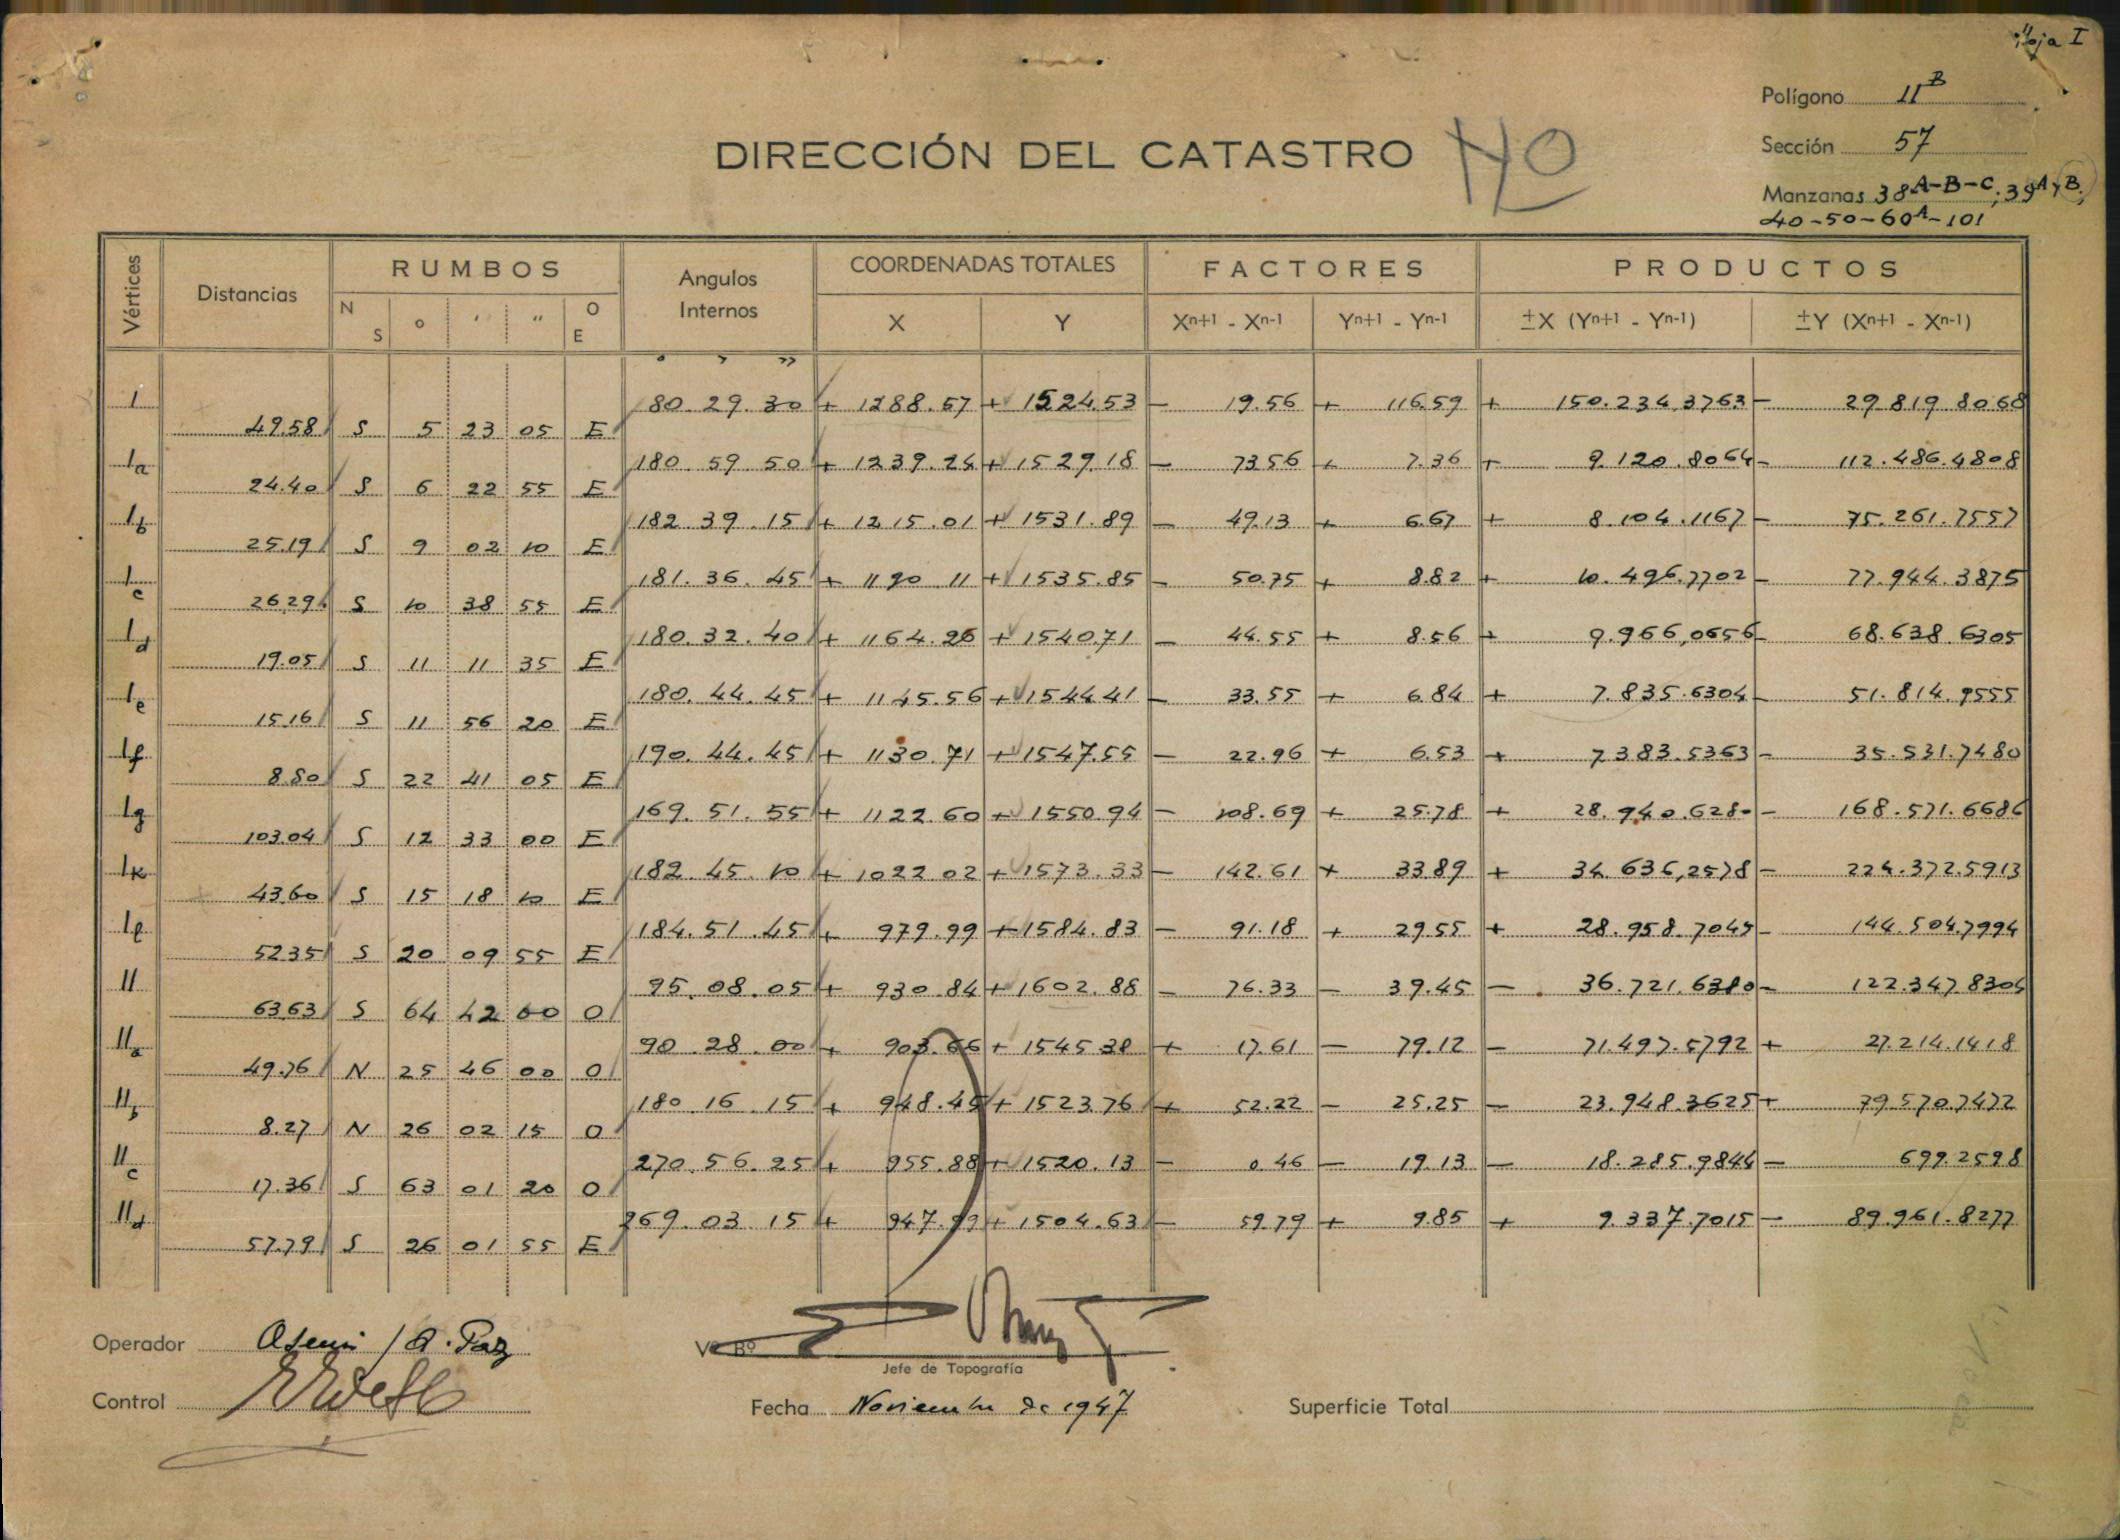 Hoja I
Polígono 11ᴮ
DIRECCIÓN DEL CATASTRO NO
Sección 57
Manzanas 38 A-B-C; 39 A y B;
40-50-60ᴬ-101
Vértices Distancias RUMBOS Angulos Internos COORDENADAS TOTALES FACTORES PRODUCTOS
N S ° ' " O E X Y Xn+1 - Xn-1 Yn+1 - Yn-1 ±X (Yn+1 - Yn-1) ±Y (Xn+1 - Xn-1)
° ' "
I 180.29.30 + 1288.57 + 1524.53 - 19.56 + 116.59 + 150.234,3763 - 29.819.8068
49.58 S 5 23 05 E
Ia 180.59.50 + 1239.24 + 1529.18 - 73.56 + 7.36 + 9.120.8064 - 112.486.4808
24.40 S 6 22 55 E
Ib 182.39.15 + 1215.01 + 1531.89 - 49.13 + 6.67 + 8.104.1167 - 75.261.7557
25.19 S 9 02 10 E
Ic 181.36.45 + 1190.11 + 1535.85 - 50.75 + 8.82 + 10.496.7702 - 77.944.3875
26.29 S 10 38 55 E
Id 180.32.40 + 1164.26 + 1540.71 - 44.55 + 8.56 + 9.966,0656 - 68.638.6305
19.05 S 11 11 35 E
Ie 180.44.45 + 1145.56 + 1544.41 - 33.55 + 6.84 + 7.835.6304 - 51.814.9555
15.16 S 11 56 20 E
If 190.44.45 + 1130.71 + 1547.55 - 22.96 + 6.53 + 7.383.5363 - 35.531.7480
8.80 S 22 41 05 E
Ig 169.51.55 + 1122.60 + 1550.94 - 108.69 + 25.78 + 28.940.6280 - 168.571.6686
103.04 S 12 33 00 E
Ik 182.45.10 + 1022.02 + 1573.33 - 142.61 + 33.89 + 34.636,2578 - 224.372.5913
43.60 S 15 18 10 E
Il 184.51.45 + 979.99 + 1584.83 - 91.18 + 29.55 + 28.958.7045 - 144.504.7994
52.35 S 20 09 55 E
II 95.08.05 + 930.84 + 1602.88 - 76.33 - 39.45 - 36.721.6380 - 122.347.8304
63.63 S 64 42 00 O
IIa 90.28.00 + 903.66 + 1545.38 + 17.61 - 79.12 - 71.497.5792 + 27.214.1418
49.76 N 25 46 00 O
IIb 180.16.15 + 948.45 + 1523.76 + 52.22 - 25.25 - 23.948.3625 + 79.570.7472
8.27 N 26 02 15 O
IIc 270.56.25 + 955.88 + 1520.13 - 0.46 - 19.13 - 18.285.9844 - 699.2598
17.36 S 63 01 20 O
IId 269.03.15 + 947.99 + 1504.63 - 59.79 + 9.85 + 9.337.7015 - 89.961.8277
57.79 S 26 01 55 E
Operador A. Paz
Vº Bº
Jefe de Topografía
Control
Fecha Noviembre de 1947
Superficie Total